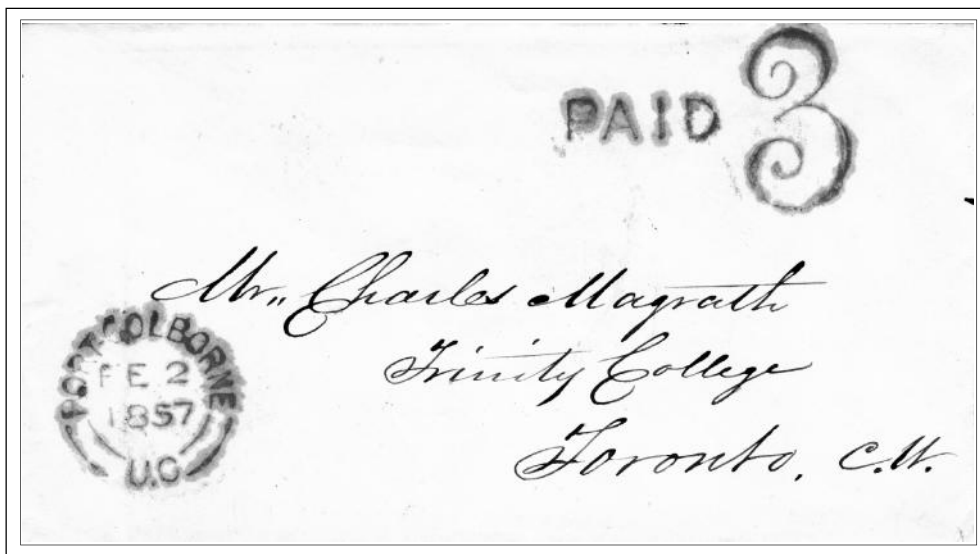 PAID 3
Mr,, Charles Magrath
Trinity College
Toronto, C.W.
PORT COLBORNE
FE 2
1857
U.C